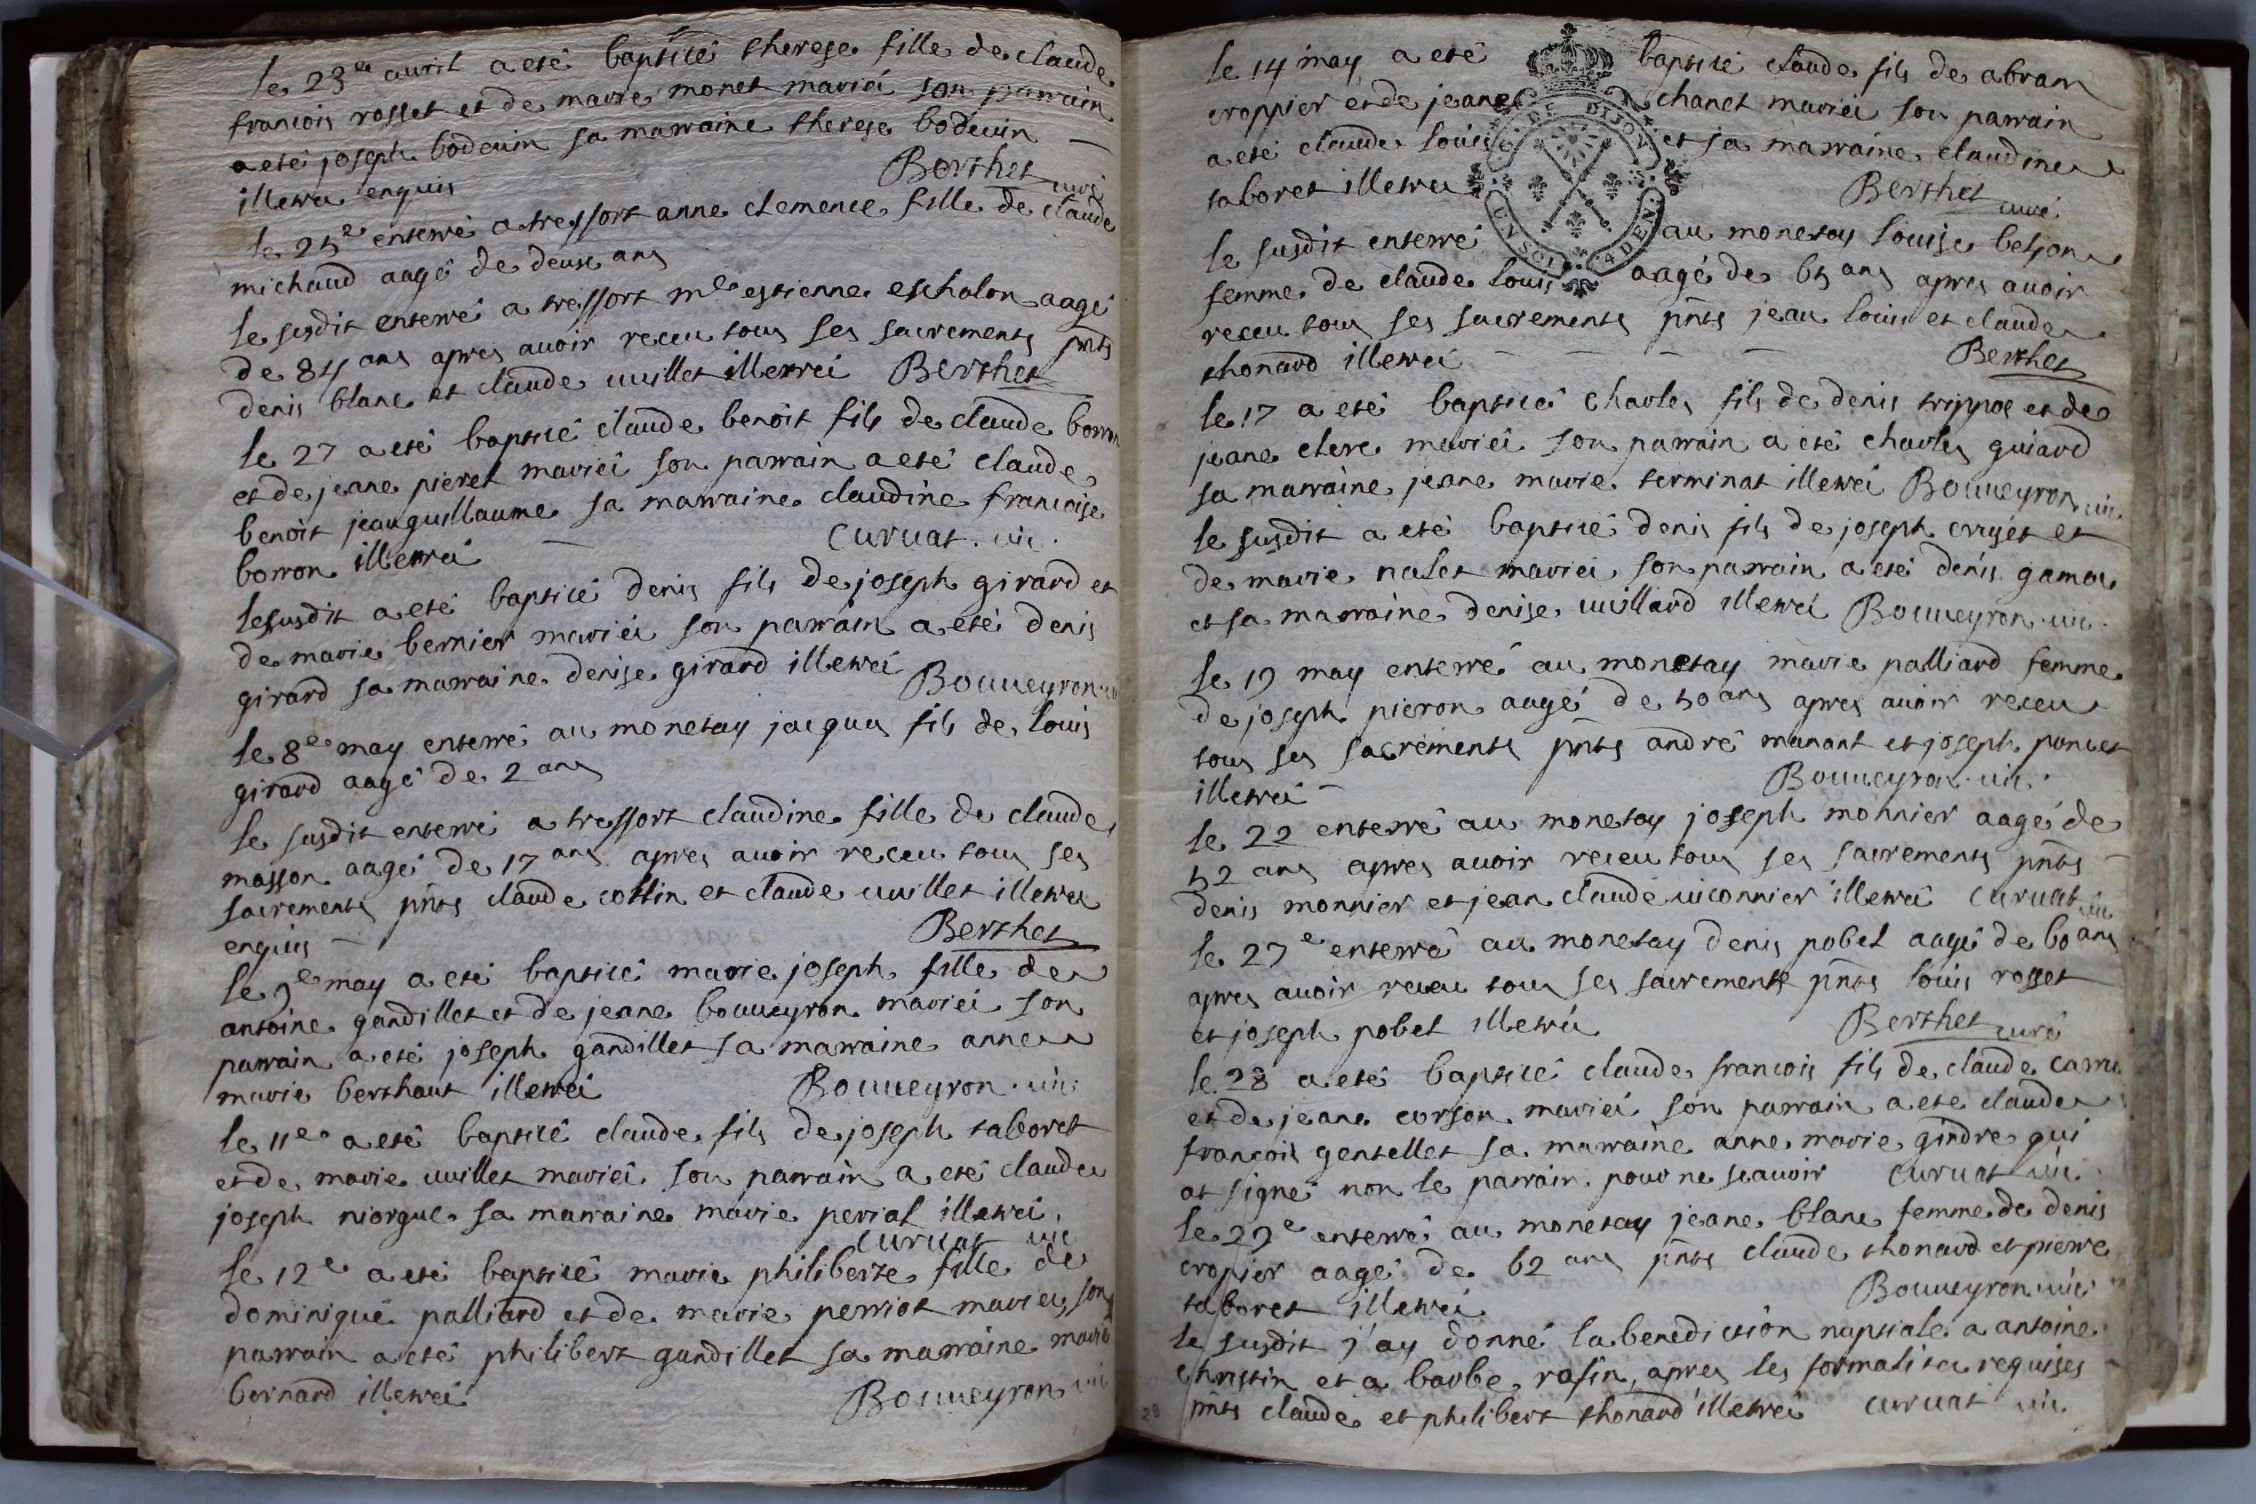 le 23e auril a eté bapticé therese fille de claude
francois rosset et de marie monet mariéi son parrain
a eté joseph bodeuin sa marraine therese bodeuin
illetré enquis Berthet curé
le 25e enterré a tressort anne clemence fille de claude
michaud aagé de deuse ans
le susdit enterré a tressort mle estienne eschalon aagé
de 84 ans apres auoir receu tous ses sacrements pnts
denis blanc et claude uuillet illetréi Berthet
le 27 a eté bapticé claude benoit fils de claude borron
et de jeane pieret mariéi son parrain a eté claude
benoit jeanguillaume sa marraine claudine francoise
borron illetréi Curuat uic.
le susdit a eté bapticé denis fils de joseph girard et
de marie bernier mariéi son parrain a eté denis
girard sa marraine denise girard illetréi
Bouueyron
le 8e may enterré au monetay jacques fils de louis
girard aagé de 2 ans
le susdit enterré a tressort claudine fille de claude
masson aagé de 17 ans apres auoir receu tous ses
sacrements pnts claude cottin et claude uuillet illetréi
enquis Berthet
le 9e may a eté bapticé marie joseph fille de
antoine gandillet et de jeane bouueyron mariéi son
parrain a eté joseph gandillet sa marraine anne
marie berthaut illetréi Bouueyron uic
le 11e a eté bapticé claude fils de joseph taboret
et de marie uuillet mariéi son parrain a eté claude
joseph niorgue sa marraine marie perial illetréi
Curuat uic
le 12e a eté bapticé marie philiberte fille de
dominique palliard et de marie perriot mariéi son
parrain a eté philibert gandillet sa marraine marie
bernard illetréi Bouueyron uic
le 14 may a eté baptisé claude fils de abram
croppier et de jeane chanel mariéi son parrain
a eté claude louis et sa marraine claudine
taboret illetréi Berthet curé
le susdit enterré au monetay louise betson
femme de claude louis aagé de 65 ans apres auoir
receu tous ses sacrements pnts jean louis et claude
thonard illetréi Berthet
le 17 a eté bapticé charles fils de denis trippoz et de
jeane clerc mariéi son parrain a eté charles guiard
sa marraine jeane marie terminat illetréi Bouueyron uic.
le susdit a eté bapticé denis fils de joseph cruset et
de marie nalet mariéi son parrain a eté denis
et sa marraine denise uuillard illetréi Bouueyron uic.
le 19 may enterré au monetay marie palliard femme
de joseph pieron aagé de 50 ans apres auoir receu
tous ses sacrements pnts andré manant et joseph poncet
illetréi Bouueyron uic.
le 22 enterré au monetay joseph monnier aagé de
52 ans apres auoir receu tous ses sacrements pnts
denis monnier et jean claude uiconnier illetréi Curuat uic
le 27e enterré au monetay denis pobel aagé de 60 ans
apres auoir receu tous ses sacrements pnts louis rosset
et joseph pobel illetréi Berthet curé
le 28 a eté bapticé claude francois fils de claude
et de jeane corson mariéi son parrain a eté claude
francois gentellet sa marraine anne marie gindre qui
at signé non le parrain pour ne scauoir Curuat uic
le 29e enterré au monetay jeane blanc femme de denis
cropier aagé de 62 ans pnts claude thonard et pierre
taboret illetréi Bouueyron uic
le susdit j'ay donné la benediction nuptiale a antoine
christin et a barbe rasin, apres les formalites requises
pnts claude et philibert thonard illetréi Curuat uic.
29